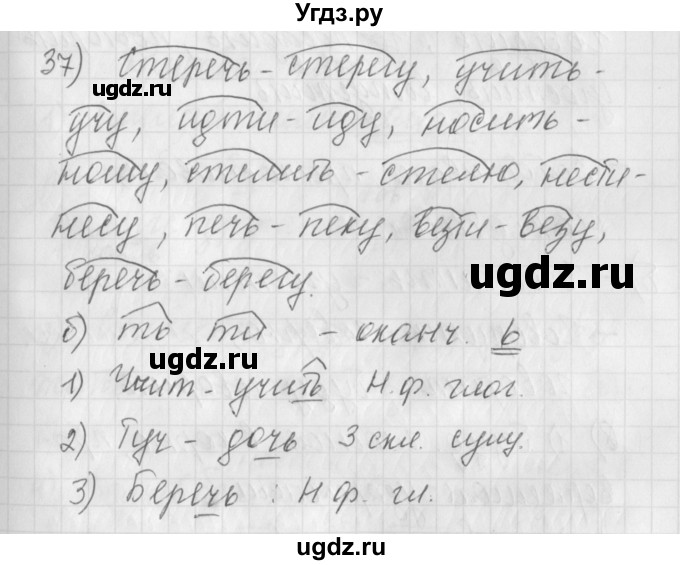 Угдз.ру
37) Стеречь - стерегу, учить -
ugdz.ru
учу, идти - иду, носить -
ношу, стелить - стелю, нести -
несу, печь - пеку, везти - везу,
ugdz.ru
беречь - берегу.
б) ть ти - оканч. ь
ugdz.ru
1) Учит - учить Н.ф. глаг.
2) Туч - дочь 3 скл. сущ.
3) Беречь : Н ф. гл.
ugdz.ru
ugdz.ru